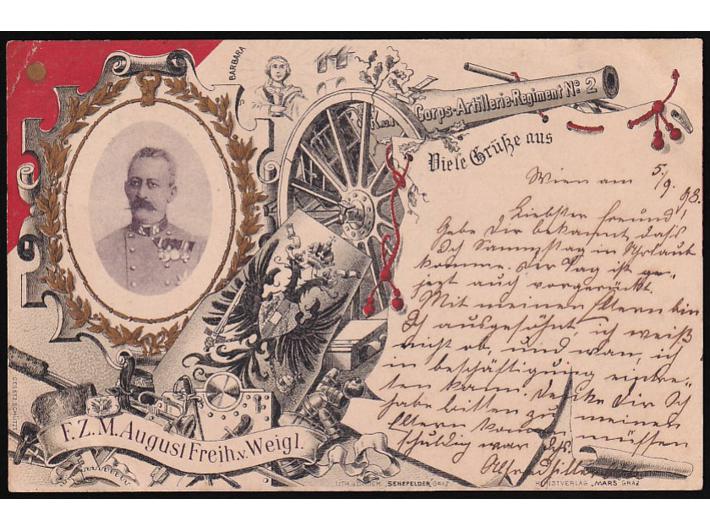 BARBARA
K. u. k. Corps-Artillerie-Regiment No 2
Viele Grüße aus
Wien am 5/9. 98.
Liebster Freund!
Gebe Dir bekannt, dass
Ich Sammstag in Uhrlaub
komme. Der Tag ist ge-
jezt auch vorgerückt.
Mit meinen Eltern bin
Ich ausgesöhnt, ich weiß
nicht ob, und wan, ich
in beschäftigung eintre-
ten kann. Denke Dir Ich
habe bitten zu meinen
Eltern müssen
schuldig war ich.
Alfred
F.Z.M. August Freih. v. Weigl.
LITH. u. DRUCK "SENEFELDER" GRAZ
KUNSTVERLAG "MARS" GRAZ